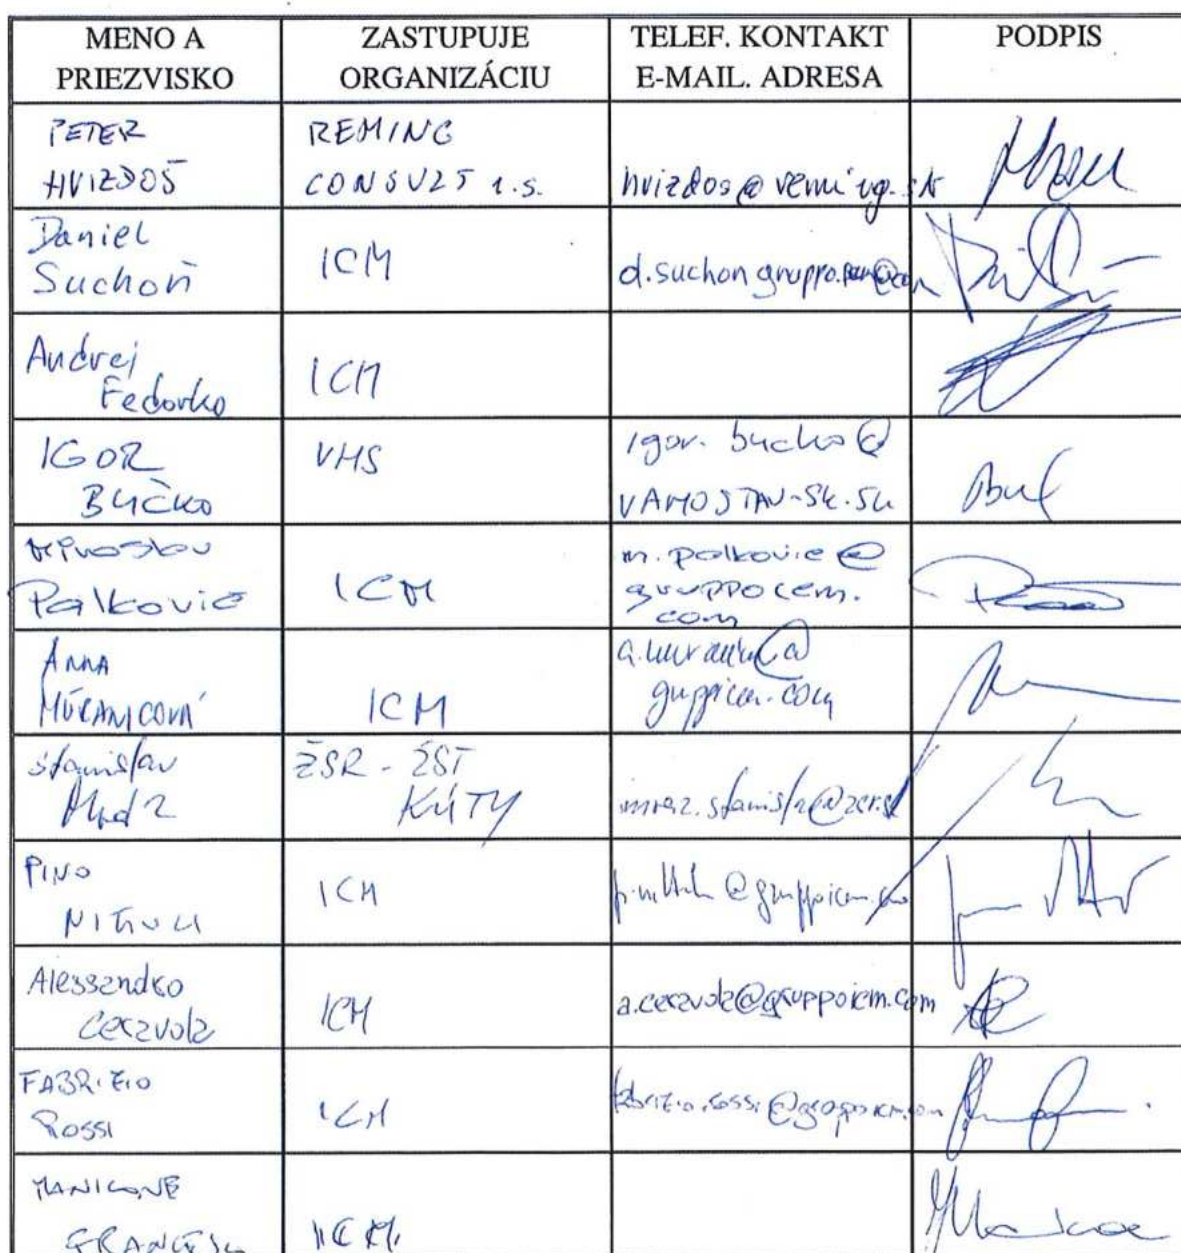 MENO A
PRIEZVISKO
ZASTUPUJE
ORGANIZÁCIU
TELEF. KONTAKT
E-MAIL. ADRESA
PODPIS
PETER
HVIZDOŠ
REMING
CONSULT a.s.
hvizdos@reming.sk
Daniel
Suchoň
ICM
d.suchon
Andrej
Fedorko
ICM
IGOR
BUČKO
VHS
igor.bucko@
VAHOSTAV-SK.SK
Miroslav
Palkovic
ICM
m.palkovic@
gruppocem.
com
ANNA
ICM
Stanislav
Mráz
ŽSR - ŽST
KÚTY
mraz.stanisla@zsr.sk
PINO
ICM
Alessandro
Ceravolo
ICM
a.ceravolo@gruppoicm.com
FABRIZIO
ROSSI
ICM
fabrizio.rossi@gruppoicm.com
MANICONE
FRANCESCO
ICM